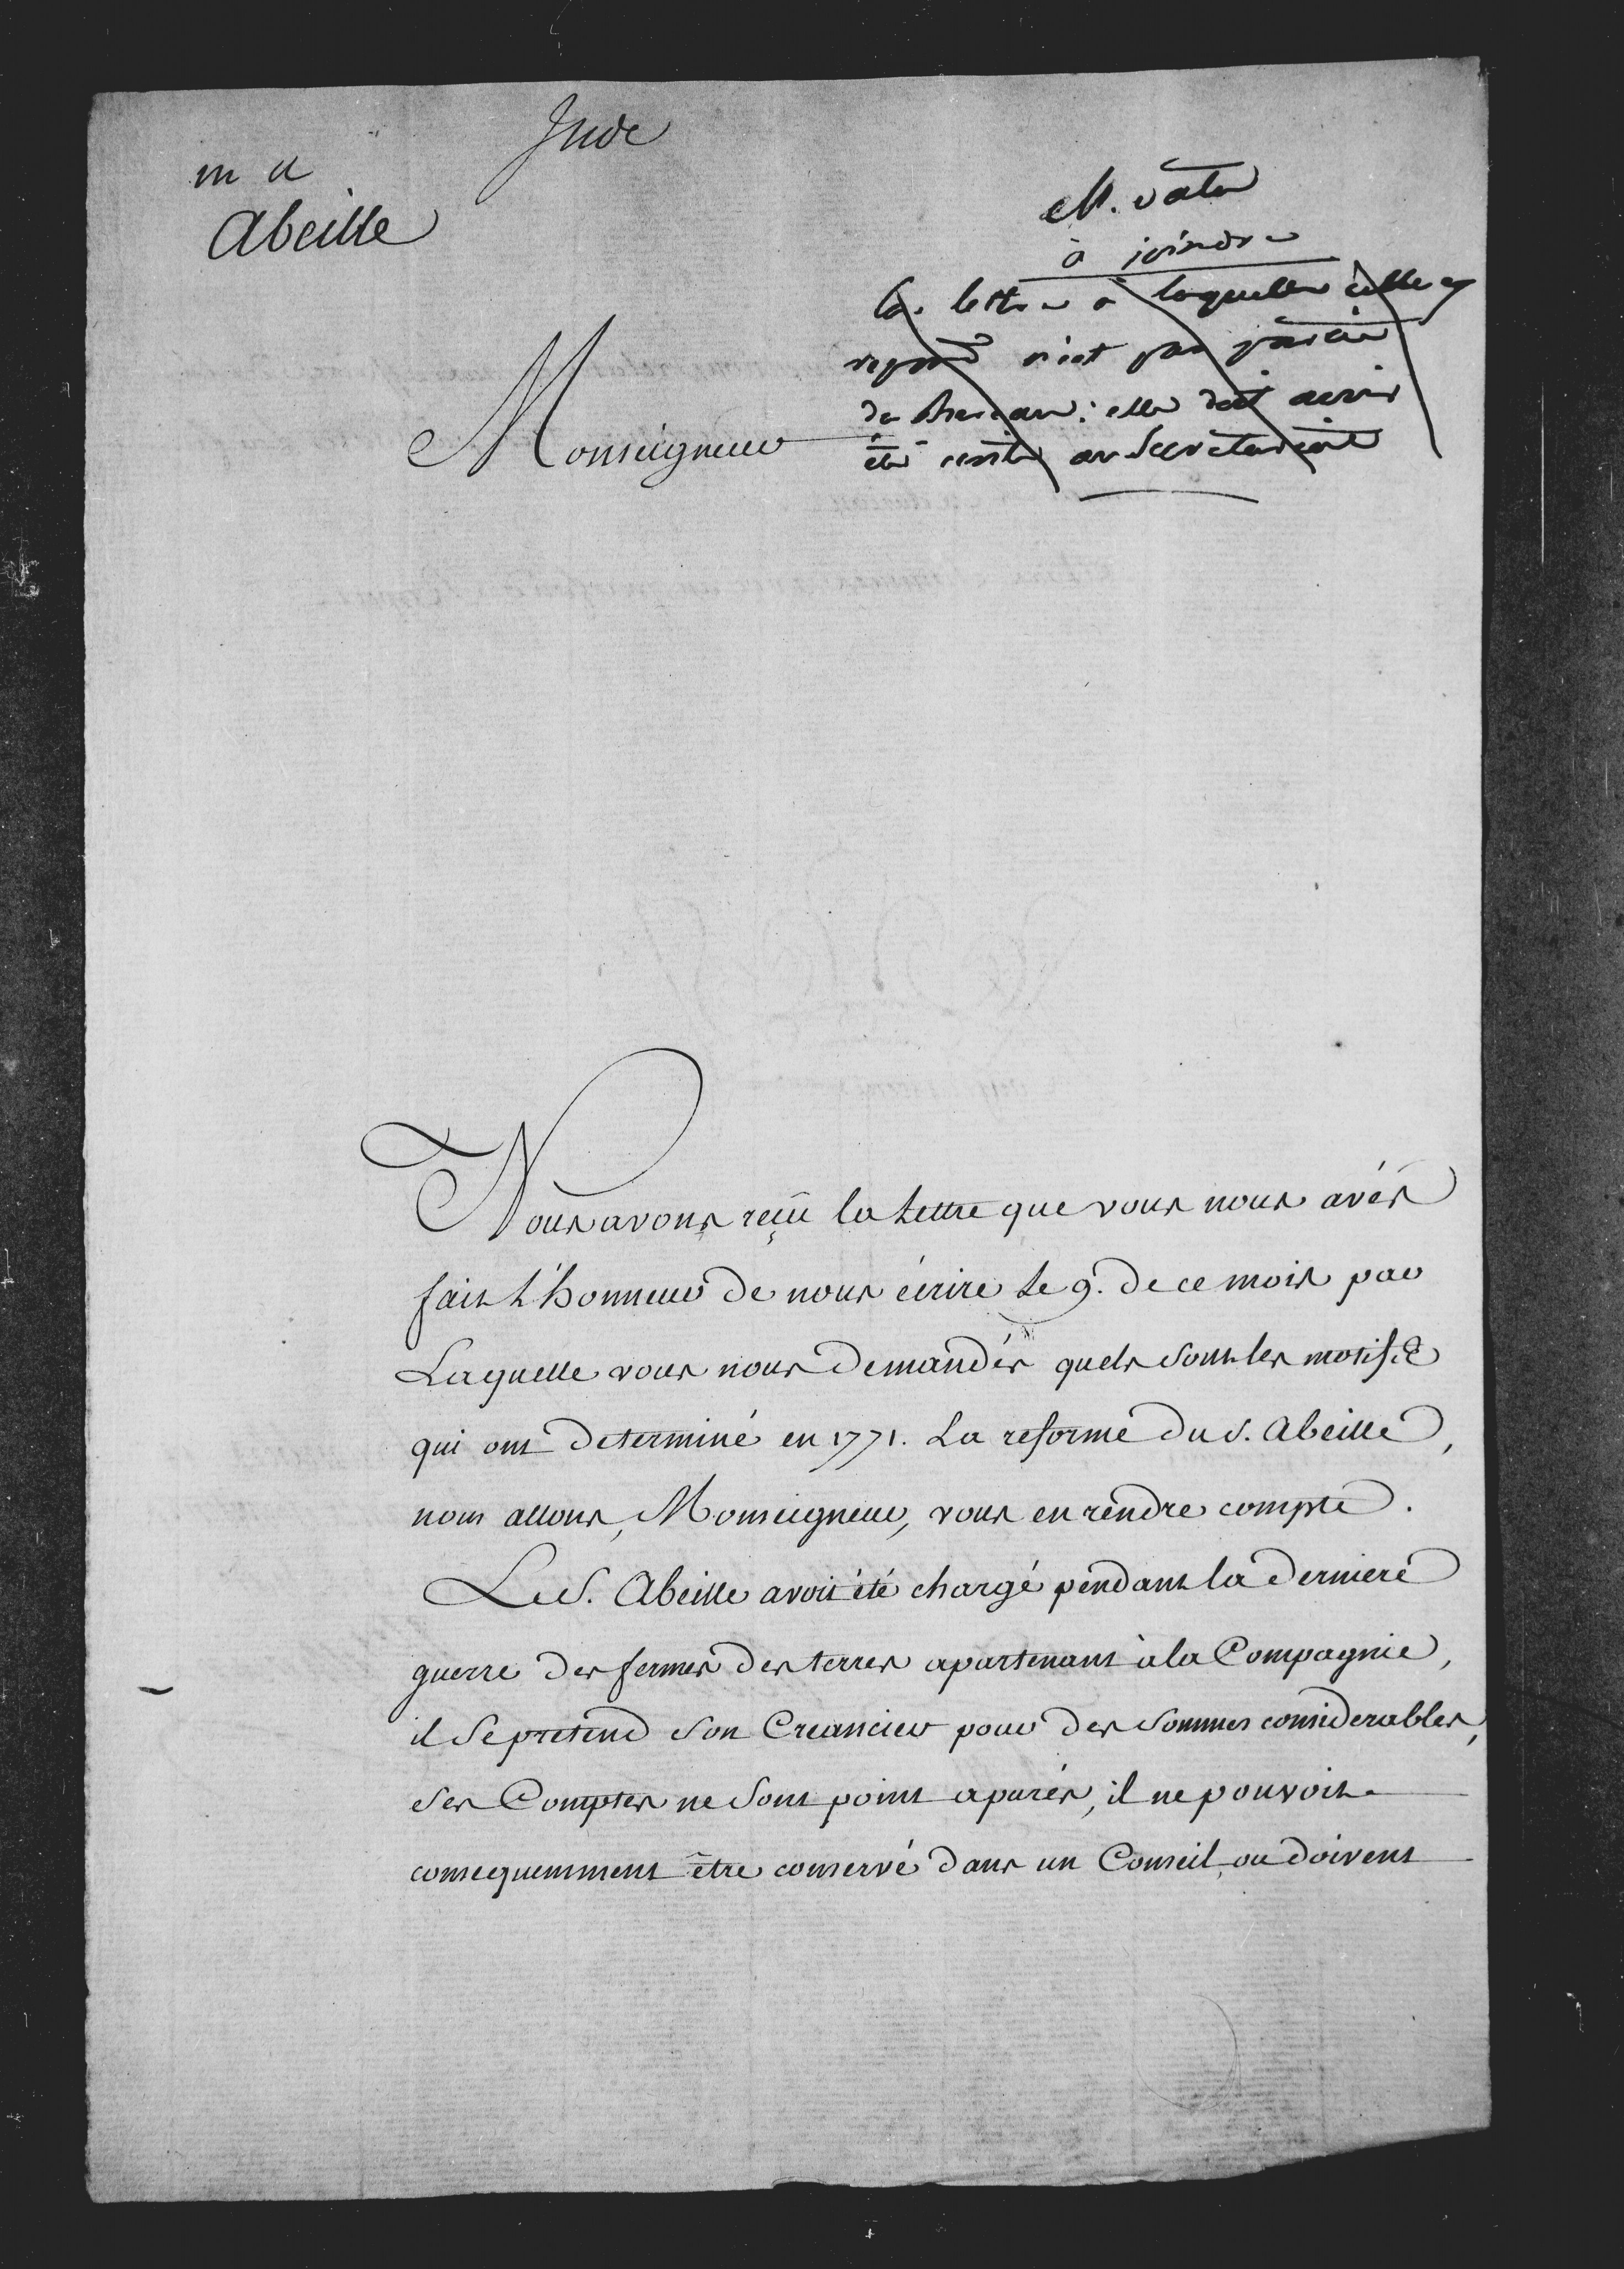 Inde
m a
Abeille
M. Vata
à joindre
la lettre à laquelle celle cy
repond n'est pas partie
du bureau: elle doit avoir
été ecrite au Secretariat
Monseigneur
Nous avons reçû la Lettre que vous nous avés
fait L'honneur de nous écrire Le 9. de ce mois par
Laquelle vous nous demandés quels sont les motifs
qui ont determiné en 1771. La reforme du S. Abeille,
nous allons, Monseigneur, vous en rendre compte.
Le S. Abeille avoit été chargé pendant la derniere
guerre des fermes des terres apartenant à la Compagnie,
il se pretend son Creancier pour des sommes considerables,
ses Comptes ne sont point apurés, il ne pouvoit
consequemment être conservé dans un Conseil, ou doivent